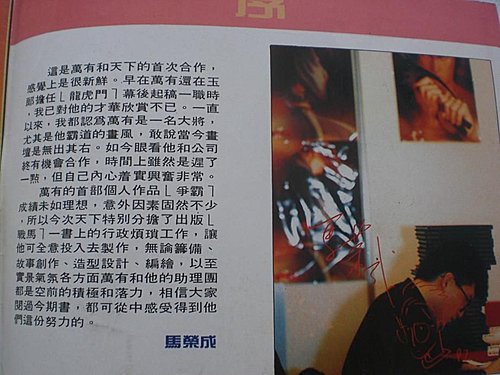 序
這是萬有和天下的首次合作，
感覺上是很新鮮。早在萬有還在玉
郎擔任「龍虎門」幕後起稿一職時
，我已對他的才華欣賞不已。一直
以來，我都認爲萬有是一名大將，
尤其是他霸道的畫風，敢說當今畫
壇是無出其右。如今眼看他和公司
終有機會合作，時間上雖然是遲了
一點，但自己內心着實興奮非常。
萬有的首部個人作品「爭霸」
成績未如理想，意外因素固然不少
，所以今次天下特別分擔了出版「
戰馬」一書上的行政煩瑣工作，讓
他可全意投入去製作，無論籌備、
故事創作、造型設計、編繪，以至
實景氣氛各方面萬有和他的助理團
都是空前的積極和落力，相信大家
閱過今期書，都可從中感受得到他
們這份努力的。
馬榮成